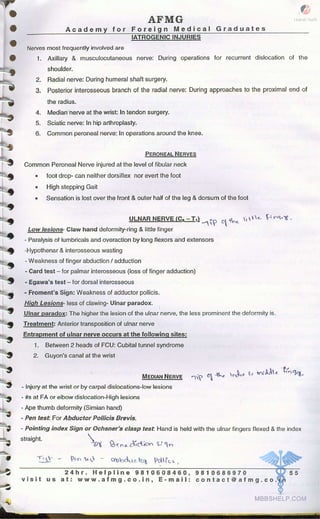 AFMG
Academy for Foreign Medical Graduates
IATROGENIC INJURIES
Nerves most frequently involved are
1. Axillary & musculocutaneous nerve: During operations for recurrent dislocation of the
shoulder.
2. Radial nerve: During humeral shaft surgery.
3. Posterior interosseous branch of the radial nerve: During approaches to the proximal end of
the radius.
4. Median nerve at the wrist: In tendon surgery.
5. Sciatic nerve: In hip arthroplasty.
6. Common peroneal nerve: In operations around the knee.
PERONEAL NERVES
Common Peroneal Nerve injured at the level of fibular neck
• foot drop- can neither dorsiflex nor evert the foot
• High stepping Gait
• Sensation is lost over the front & outer half of the leg & dorsum of the foot
ULNAR NERVE (C8 – T1) → Tip of the little finger.
Low lesions- Claw hand deformity-ring & little finger
- Paralysis of lumbricals and overaction by long flexors and extensors
-Hypothenar & interosseous wasting
- Weakness of finger abduction / adduction
- Card test – for palmar interosseous (loss of finger adduction)
- Egawa's test – for dorsal interosseous
- Froment's Sign: Weakness of adductor pollicis.
High Lesions- less of clawing- Ulnar paradox.
Ulnar paradox: The higher the lesion of the ulnar nerve, the less prominent the deformity is.
Treatment: Anterior transposition of ulnar nerve
Entrapment of ulnar nerve occurs at the following sites:
1. Between 2 heads of FCU: Cubital tunnel syndrome
2. Guyon's canal at the wrist
MEDIAN NERVE → Tip of the index & middle finger.
- Injury at the wrist or by carpal dislocations-low lesions
- its at FA or elbow dislocation-High lesions
- Ape thumb deformity (Simian hand)
- Pen test: For Abductor Pollicis Brevis.
- Pointing index Sign or Ochsner's clasp test: Hand is held with the ulnar fingers flexed & the index
straight.
or Benediction sign
Test - Pen test - abductor pollics.
24hr. Helpline 9810608460, 9810686970 55
visit us at: www.afmg.co.in, E-mail: contact@afmg.co.in
MBBSHELP.COM